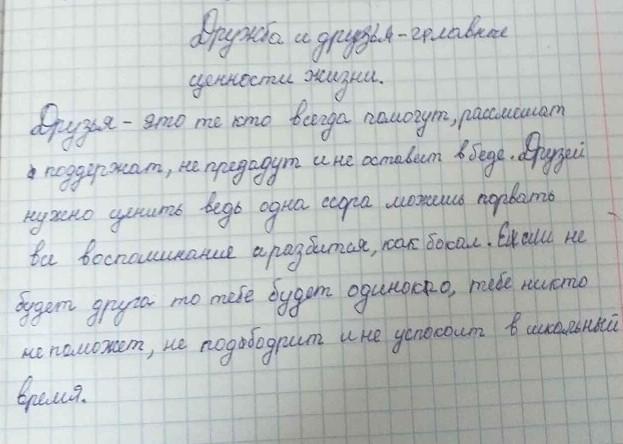 Дружба и друзья - главные
ценности жизни.
Друзья - это те кто всегда помогут, рассмешат
поддержат, не предадут и не оставят в беде. Друзей
нужно ценить ведь одна ссора можешь порвать
все воспоминание и разбится, как бокал. Если не
будет друга то тебе будет одиноко, тебе никто
не поможет, не подбодрит и не успокоит в школьный
время.